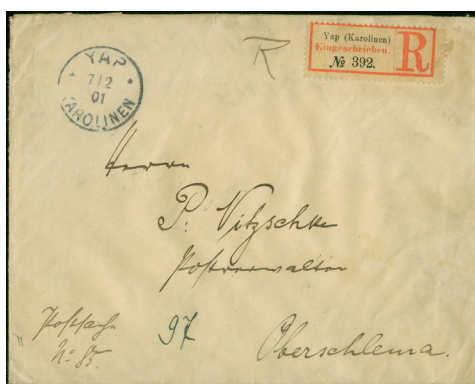 YAP
7/2
01
KAROLINEN
R
Yap (Karolinen)
Eingeschrieben.
№ 392.
R
Herrn
P. Nitzschke
Postverwalter
Postsache
No 85.
97
Oberschlema.